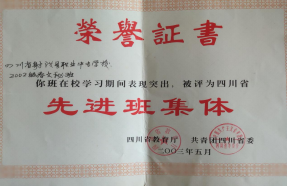 荣誉証書
四川省射洪县职业中专学校
2002级
你班在校学习期间表现突出，被评为四川省
先进班集体
四川省教育厅 共青团四川省委
二〇〇三年五月